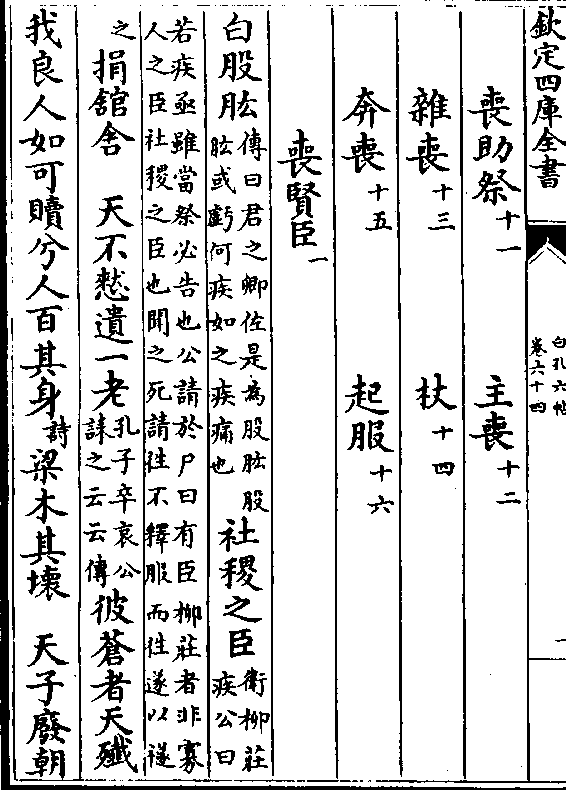 欽定四庫全書
白孔六帖
卷六十四
一
喪助祭十一　主喪十二
雜喪十三　杖十四
奔喪十五　起服十六
喪賢臣一
白股肱傳曰君之卿佐是為股肱股肱或虧何疾如之疾痛也社稷之臣衛柳莊疾公曰
若疾亟雖當祭必告也公請於尸曰有臣柳莊者非寡
人之臣社稷之臣也聞之死請徃不釋服而徃遂以襚
之捐舘舍　天不憖遺一老孔子卒哀公誄之云云傳彼蒼者天殲
我良人如可贖兮人百其身詩梁木其壞　天子廢朝